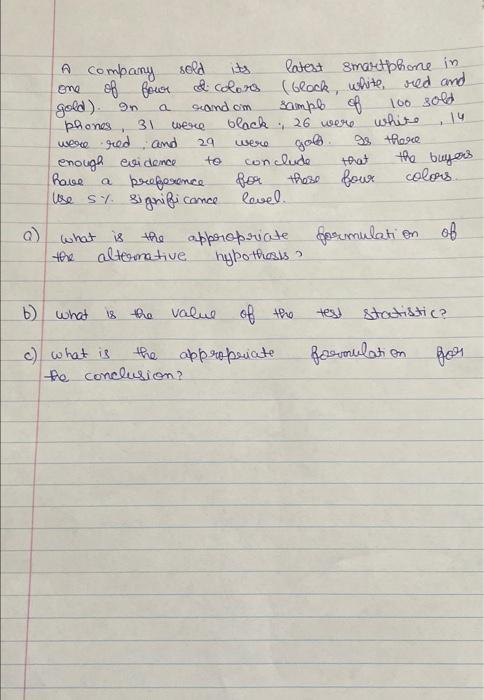 A company sold its latest smartphone in
one of four di colors (black, white, red and
gold). In a random sample of 100 sold
phones, 31 were black, 26 were white, 14
were red, and 29 were gold. Is there
enough evidence to conclude that the buyers
have a preference for these four colors.
Use 5% significance level.
a) what is the appropriate formulation of
the alternative hypothesis?
b) what is the value of the test statistic?
c) what is the appropriate formulation for
the conclusion?